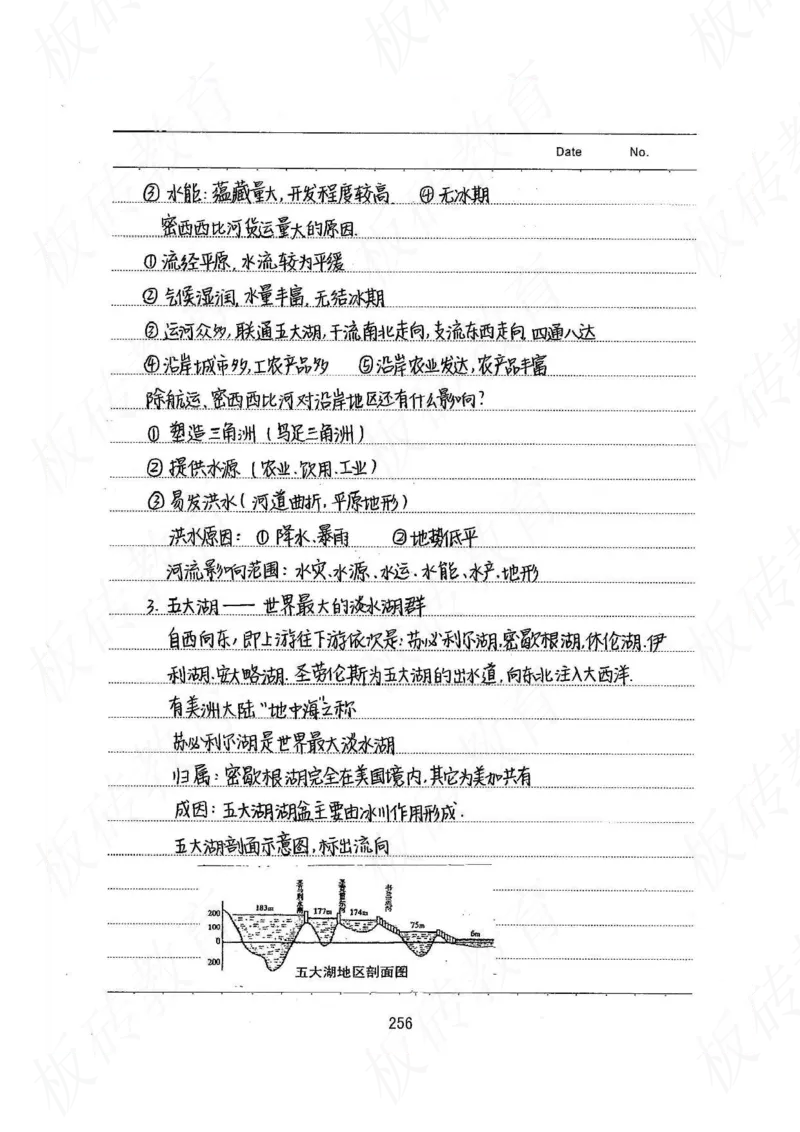 Date No.
③ 水能：蕴藏量大，开发程度较高 ④ 无冰期
密西西比河货运量大的原因.
① 流经平原，水流较为平缓
② 气候湿润，水量丰富，无结冰期
③ 运河众多，联通五大湖，干流南北走向，支流东西走向，四通八达
④ 沿岸城市多，工农产品多 ⑤ 沿岸农业发达，农产品丰富
除航运、密西西比河对沿岸地区还有什么影响？
① 塑造三角洲（鸟足三角洲）
② 提供水源（农业、饮用、工业）
③ 易发洪水（河道曲折，平原地形）
洪水原因：① 降水、暴雨 ② 地势低平
河流影响范围：水灾、水源、水运、水能、水产、地形
3. 五大湖——世界最大的淡水湖群
自西向东，即上游往下游依次是：苏必利尔湖，密歇根湖，休伦湖、伊
利湖、安大略湖. 圣劳伦斯为五大湖的出水道，向东北注入大西洋.
有美洲大陆“地中海”之称
苏必利尔湖是世界最大淡水湖
归属：密歇根湖完全在美国境内，其它为美加共有
成因：五大湖湖盆主要由冰川作用形成.
五大湖剖面示意图，标出流向
183m 177m 174m 75m 6m
200
100
0
200
五大湖地区剖面图
256
板砖教育